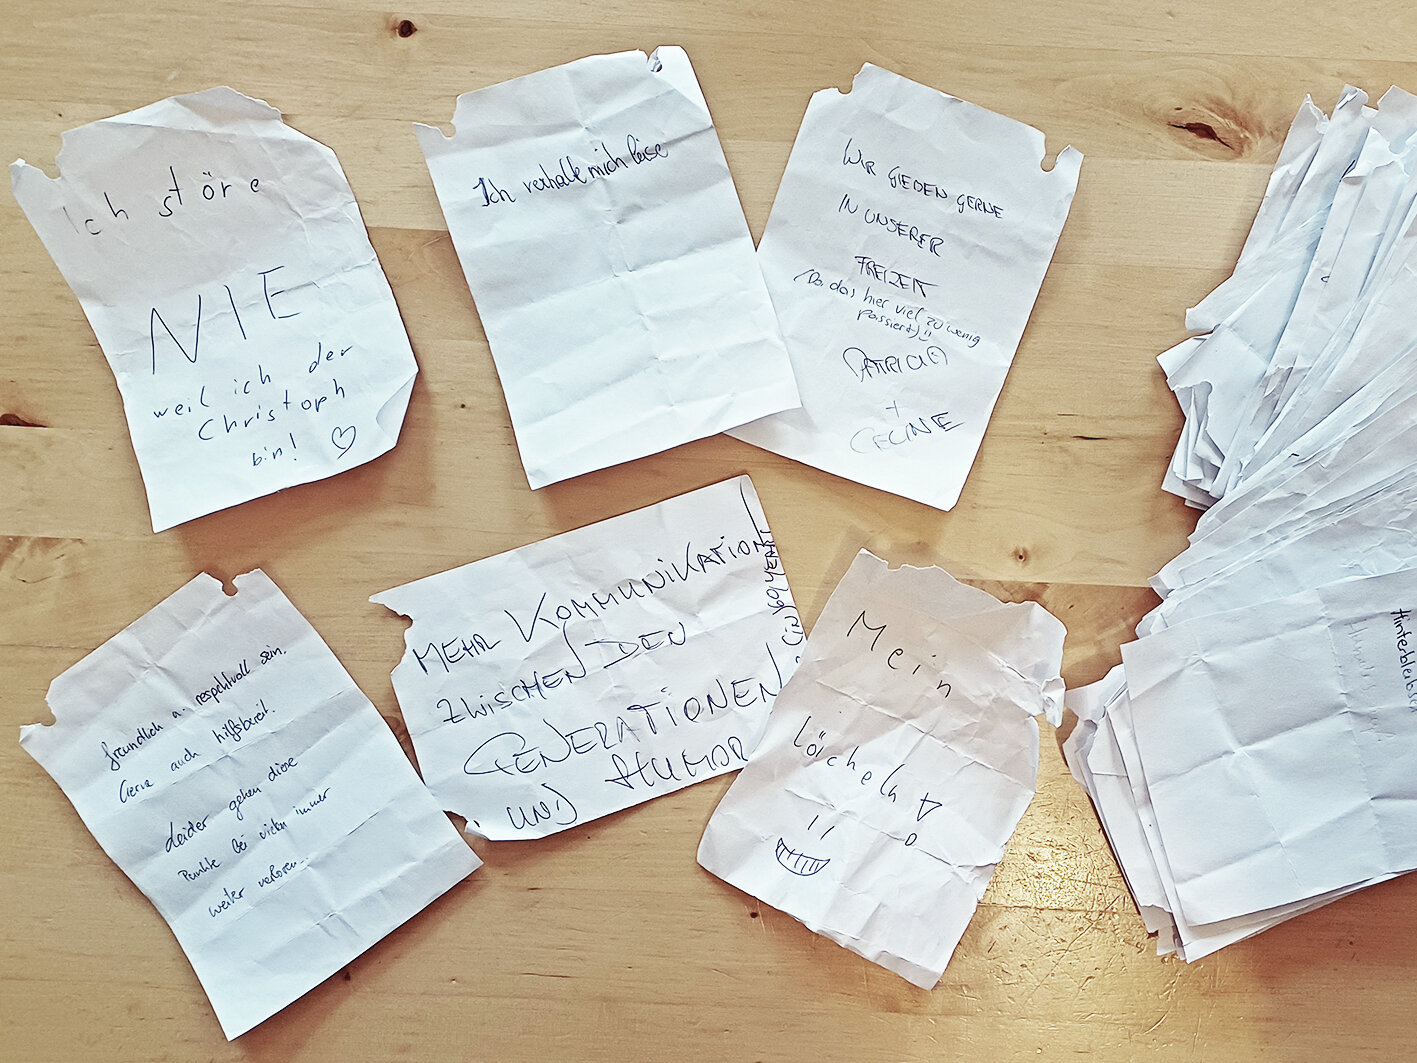 Ich störe
NIE
weil ich der
Christoph
bin! ♡
Ich verhalte mich leise
WIR GIEßEN GERNE
IN UNSERER
FREIZEIT
(Da das hier viel zu wenig
passiert)
PATRICIA
+
CELINE
freundlich u. respektvoll sein.
Gerne auch hilfsbereit.
Leider gehen diese
Punkte bei vielen immer
weiter verloren...
MEHR KOMMUNIKATION
ZWISCHEN DEN
GENERATIONEN
UND HUMOR
Mein
lächeln!